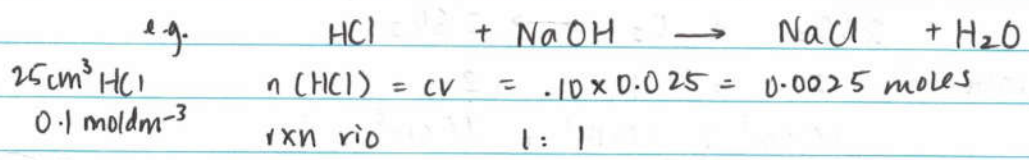 e.g. HCl + NaOH → NaCl + H₂O
25cm³ HCl n (HCl) = cv = .10 x 0.025 = 0.0025 moles
0.1 moldm⁻³ rxn rio 1 : 1